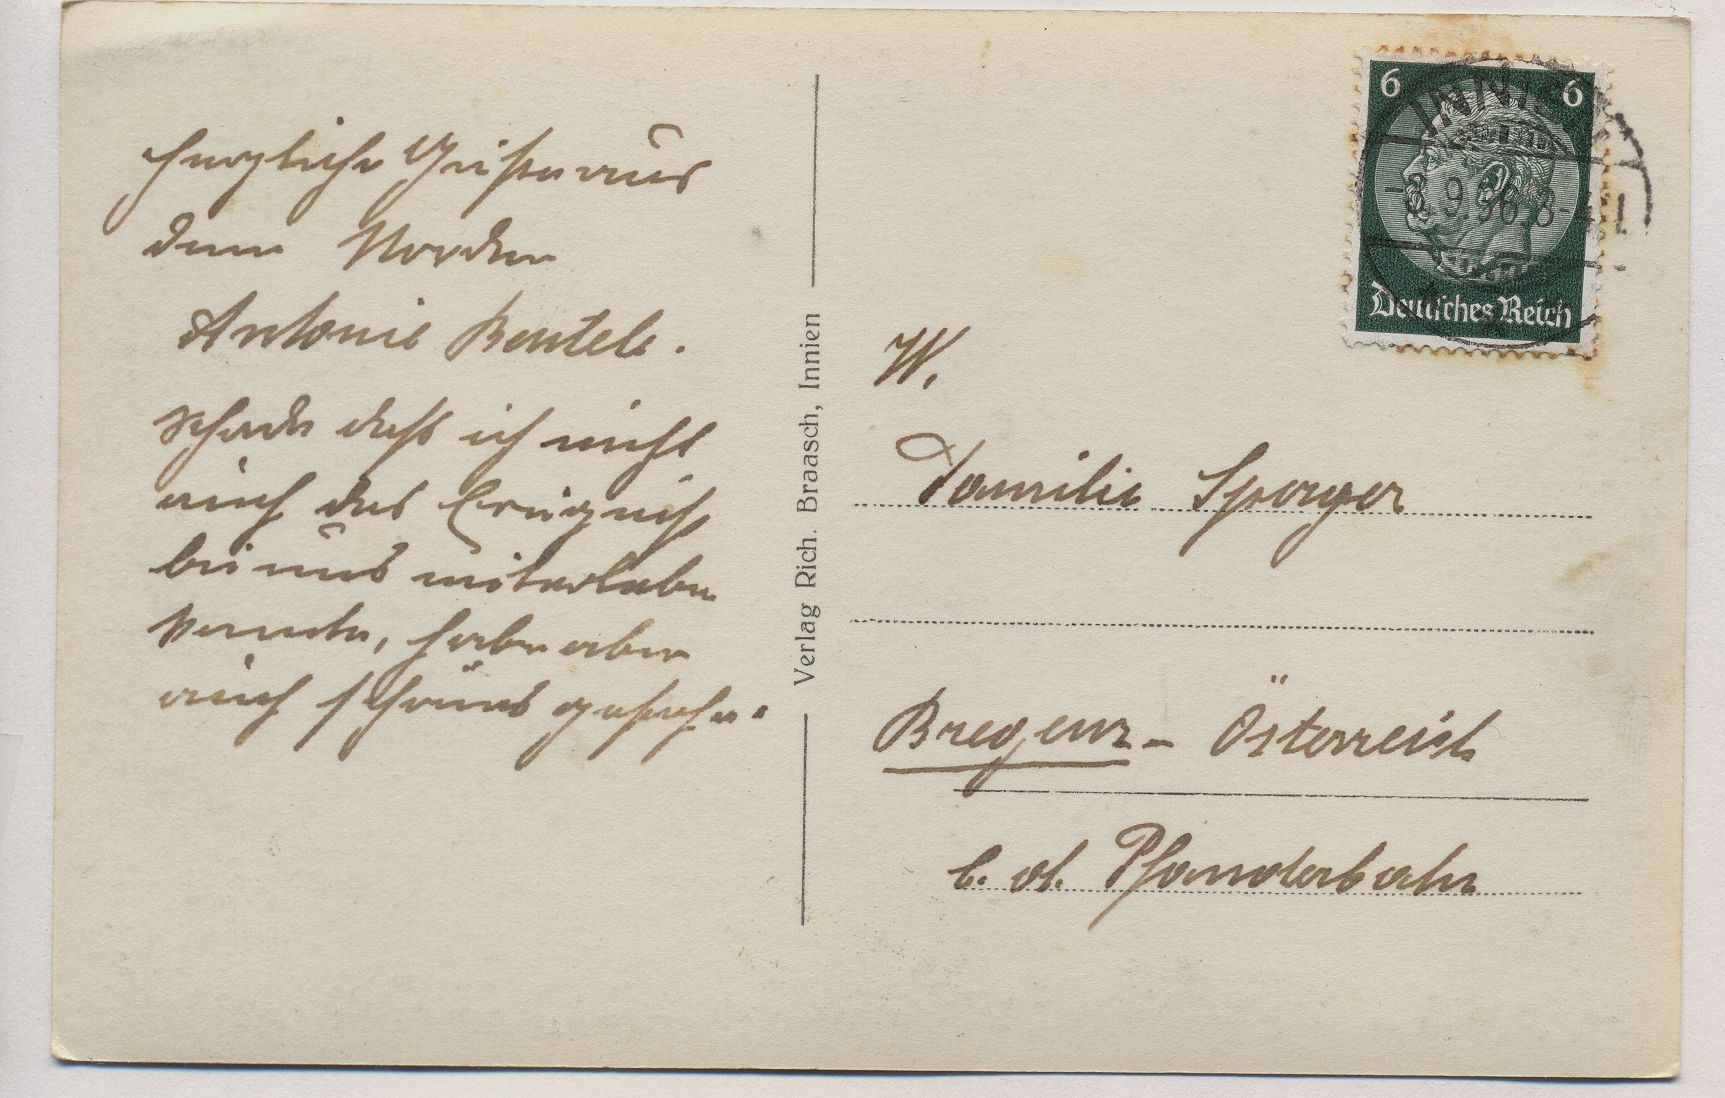 Herzliche Grüße aus
dem Norden
Antonie Beutele.
Schade daß ich nicht
auch das Ereigniß
bei uns miterleben
konnte, habe aber
auch schönes gesehen.
Verlag Rich. Braasch, Innien
6 6
Deutsches Reich
INNIEN
-3.9.36.8-
W.
Familie Sporger
Bregenz - Österreich
b. d. Pfänderbahn